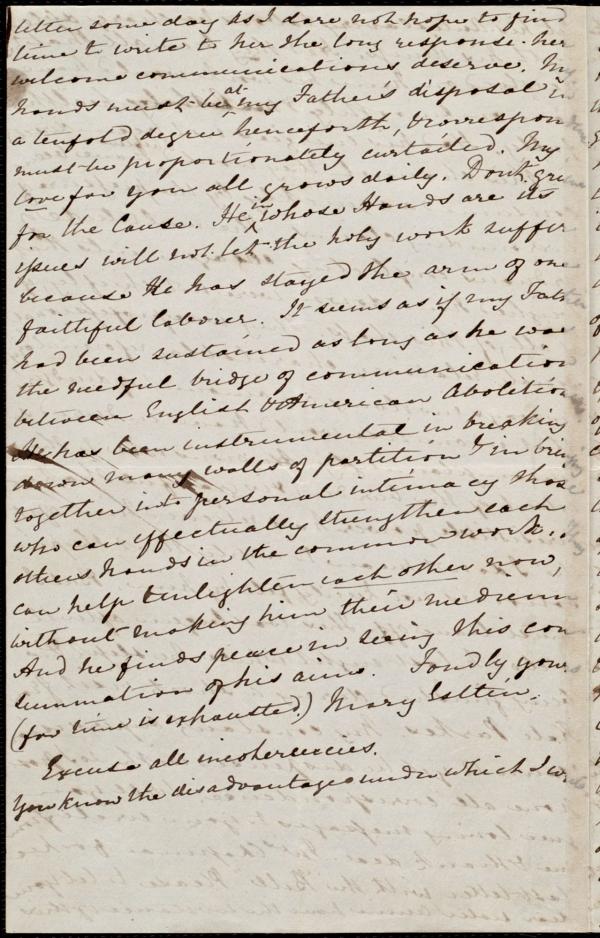 letter some day as I dare not hope to find
time to write to her the long response her
welcome communications deserve. My
hands must be at my Father's disposal in
a tenfold degree henceforth, & correspon
must be proportionately curtailed. My
love for you all grows daily. Don't gri
for the Cause. He in whose Hands are its
issues will not let the holy work suffer
because He has stayed the arm of one
faithful laborer. It seems as if my Fath
had been sustained as long as he was
the needful bridge of communication
between English & American Abolition
He has been instrumental in breaking
down many walls of partition & in brin
together into personal intimacy those
who can effectually strengthen each
others hands in the common work.
can help & enlighten each other now,
without making him their medium
And he finds peace in seeing this con
summation of his aims. Fondly your
(for time is exhausted.) Mary Estlin.
Excuse all incoherencies.
You know the disadvantages under which I